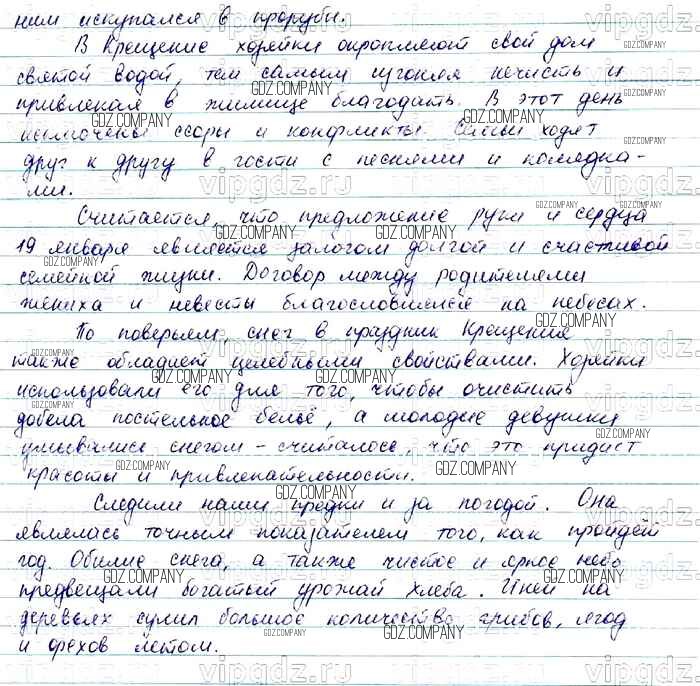 ним искупался в проруби.
В Крещение хозяйки окропляют свой дом
святой водой, тем самым изгоняя нечисть и
привлекая в жилище благодать. В этот день
исключены ссоры и конфликты. Семьи ходят
друг к другу в гости с песнями и колядка-
ми.
Считается, что предложение руки и сердца
19 января является залогом долгой и счастливой
семейной жизни. Договор между родителями
жениха и невесты благословлённый на небесах.
По поверьям, снег в праздник Крещения
также обладает целебными свойствами. Хозяйки
использовали его для того, чтобы очистить
добела постельное бельё, а молодые девушки
умывались снегом - считалось, что это придаст
красоты и привлекательности.
Следили наши предки и за погодой. Она
являлась точным показателем того, как пройдёт
год. Обилие снега, а также чистое и ясное небо
предвещали богатый урожай хлеба. Иней на
деревьях сулил большое количество грибов, ягод
и орехов летом.
vipgdz.ru
GDZ.COMPANY